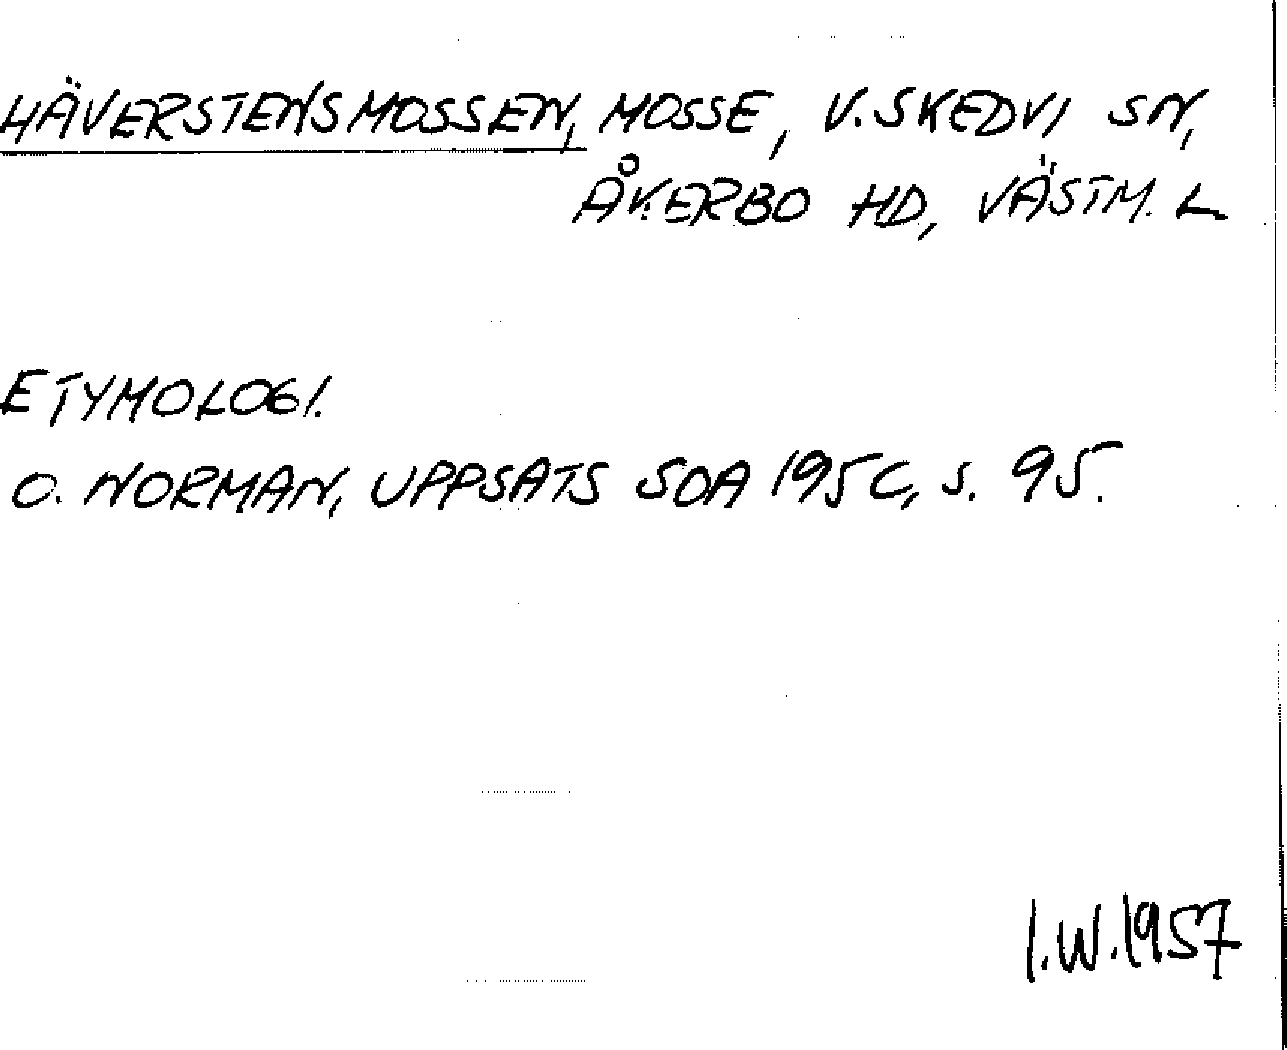 HÄVERSTENSMOSSEN, MOSSE, V. SKEDVI SN,
ÅKERBO HD, VÄSTM. L
ETYMOLOGI.
O. NORMAN, UPPSATS SOA 1950, S. 95.
I.W. 1957